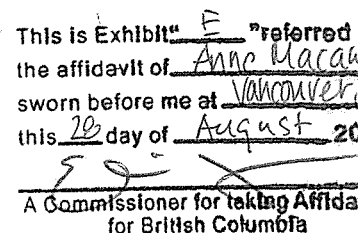 This is Exhibit" E "referred
the affidavit of Anne Macau
sworn before me at Vancouver,
this 20 day of August 20
A Commissioner for taking Affida
for British Columbia